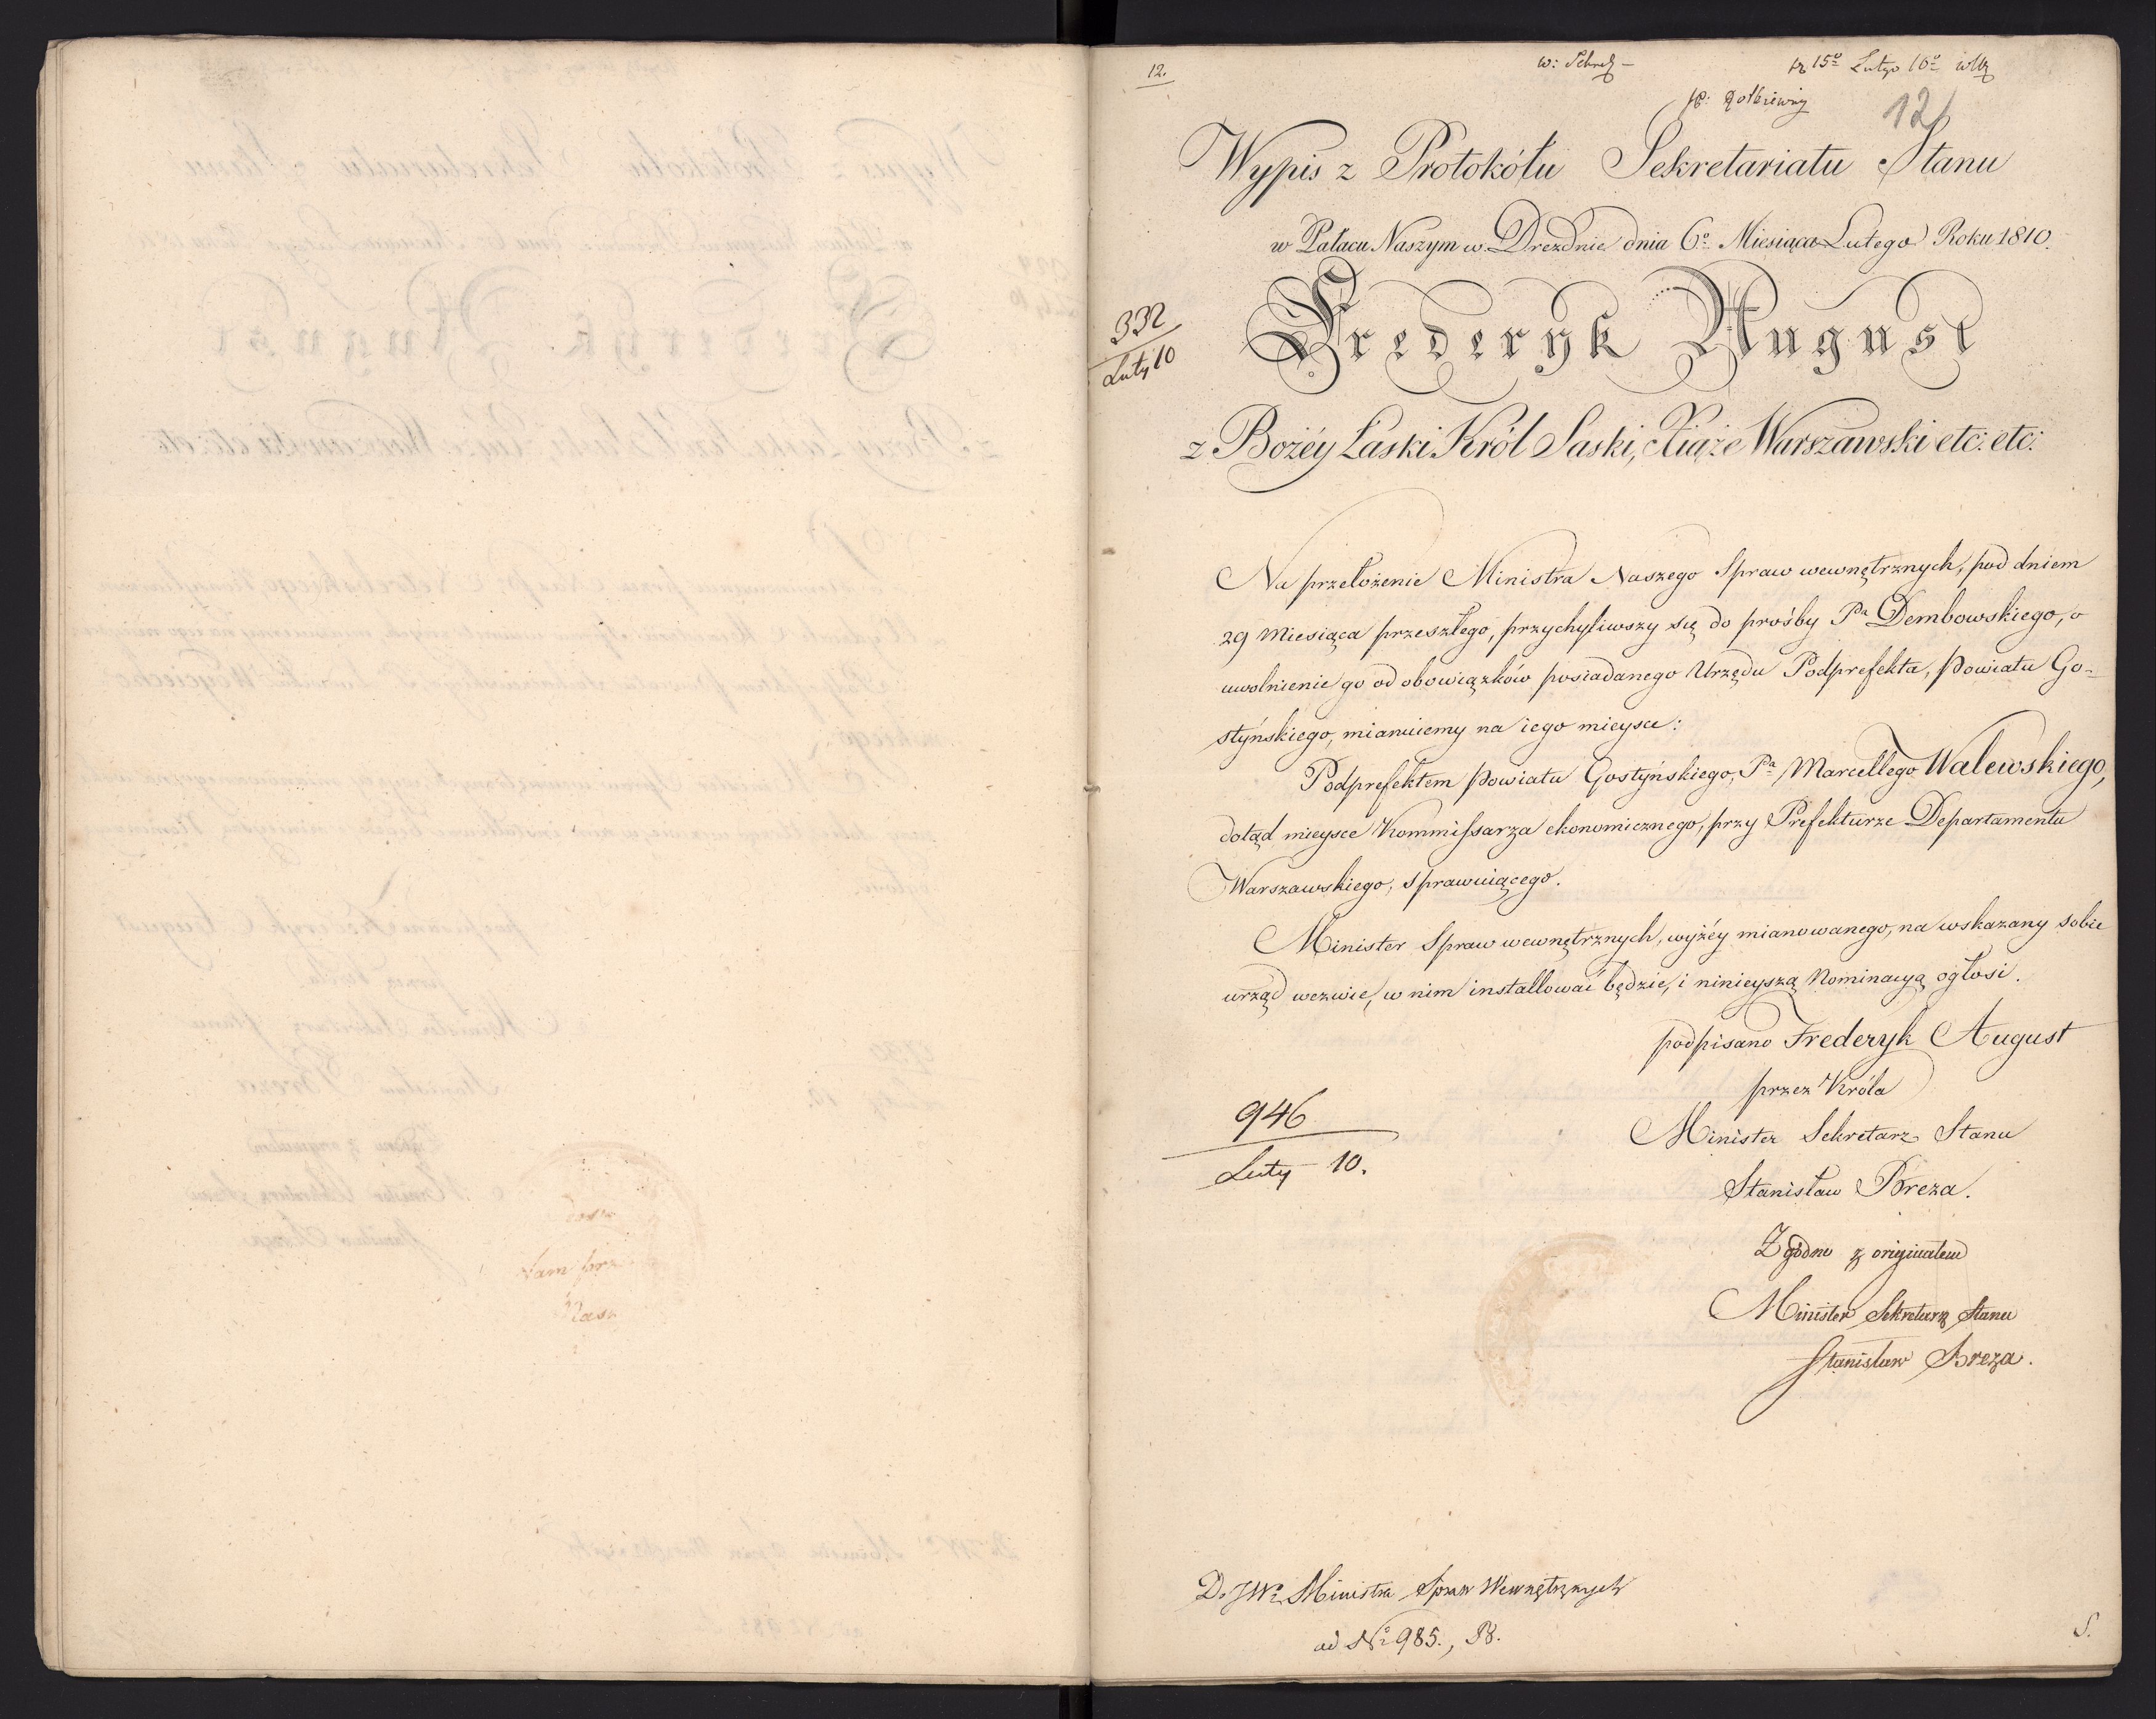 12.
15º Lutego 16º
12
Wypis z Protokółu Sekretariatu Stanu
w Pałacu Naszym w Dreźnie dnia 6º Miesiąca Lutego Roku 1810.
332
Luty 10
Frederyk August
z Bożéy Łaski Król Saski, Xiąże Warszawski etc: etc:
Na przełożenie Ministra Naszego Spraw wewnętrznych, pod dniem
29 Miesiąca przeszłego, przychyliwszy się do prośby Pa Dembowskiego, o
uwolnienie go od obowiązków posiadanego Urzędu Podprefekta, Powiatu Go-
styńskiego, mianuiemy na iego mieysce:
Podprefektem Powiatu Gostyńskiego, Pa Marcellego Walewskiego,
dotąd mieysce Kommissarza ekonomicznego, przy Prefekturze Departamentu
Warszawskiego, sprawuiącego.
Minister Spraw wewnętrznych, wyżéy mianowanego, na wskazany sobie
urząd wezwie, w nim installować będzie, i ninieyszą Nominacyą ogłosi.
podpisano Frederyk August
przez Króla
Minister Sekretarz Stanu
Stanisław Breza.
946
Luty 10.
Zgodno z originałem
Minister Sekretarz Stanu
Stanisław Breza.
Do JWº Ministra Spraw Wewnętrznych
ad Nº 985., B.
S.